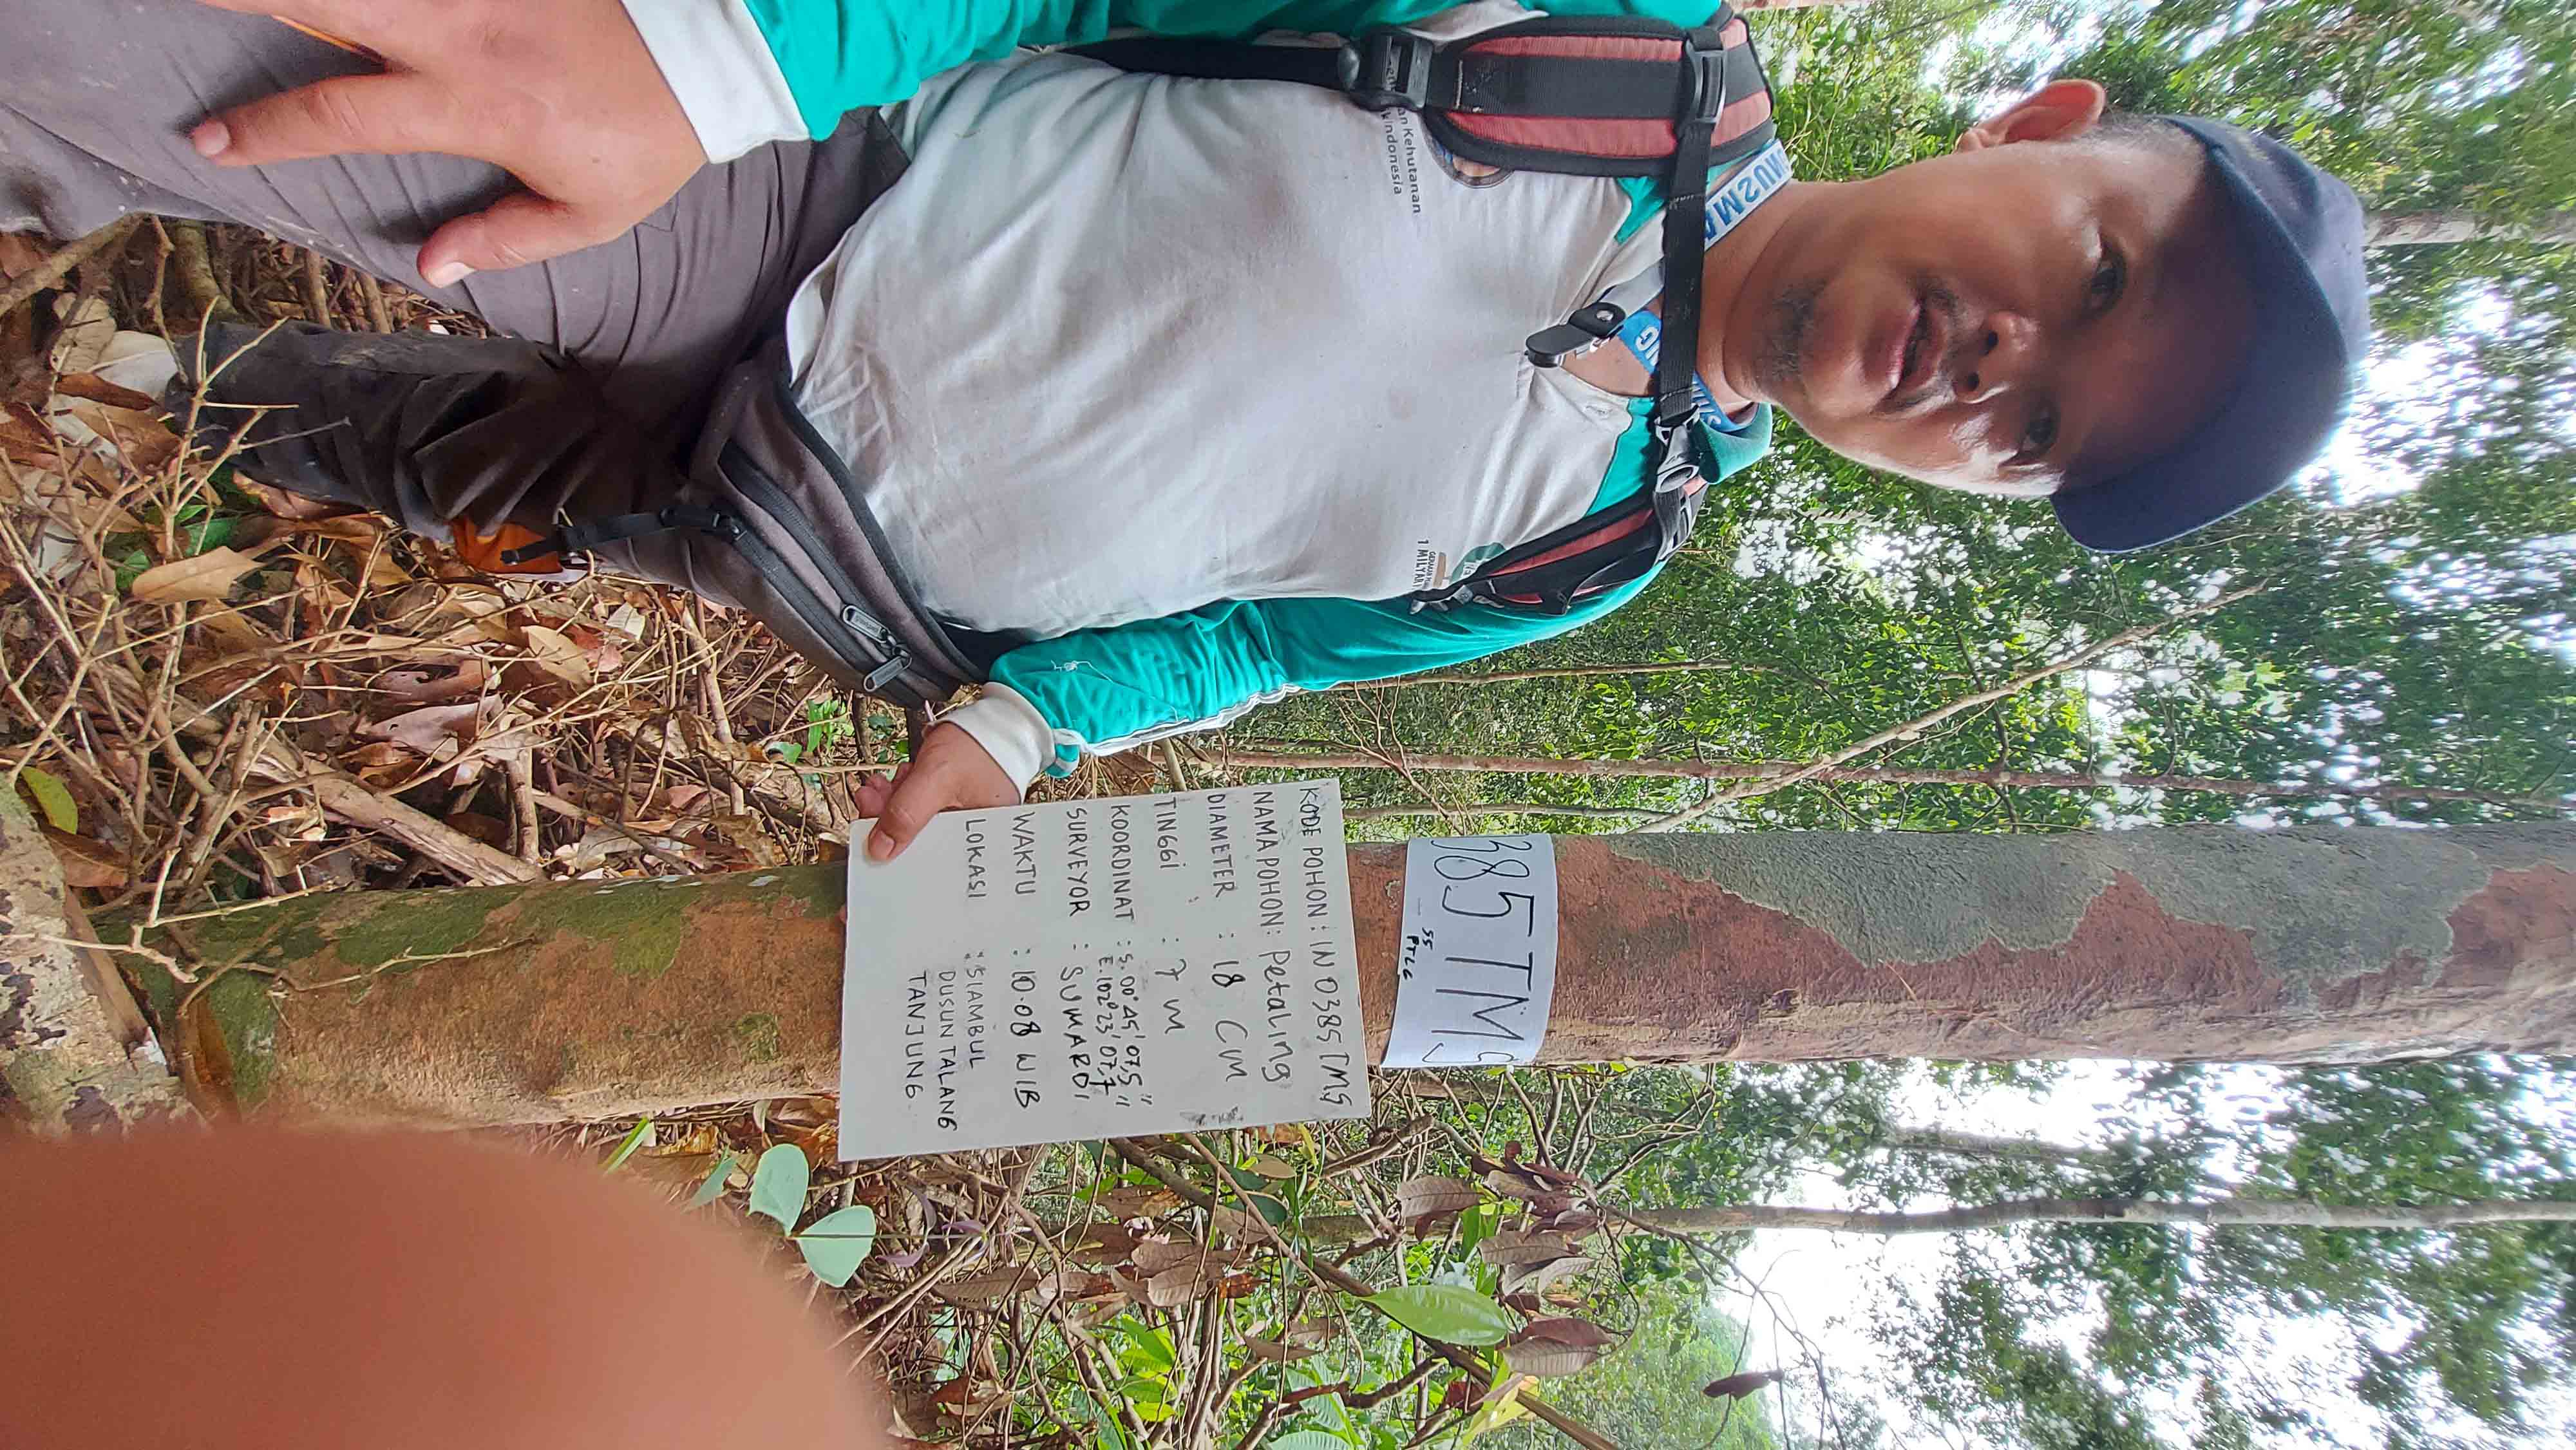 KODE POHON : IN0385TMG
NAMA POHON : Petaling
DIAMETER : 18 Cm
TINGGI : 7 M
KOORDINAT : S. 00° 45' 07,5"
E. 102° 23' 07,7"
SURVEYOR : SUMARDI
WAKTU : 10.08 WIB
LOKASI : SIAMBUL
DUSUN TALANG
TANJUNG
385TMG
55
PTLG
an Kehutanan
Indonesia
1 MILYAR